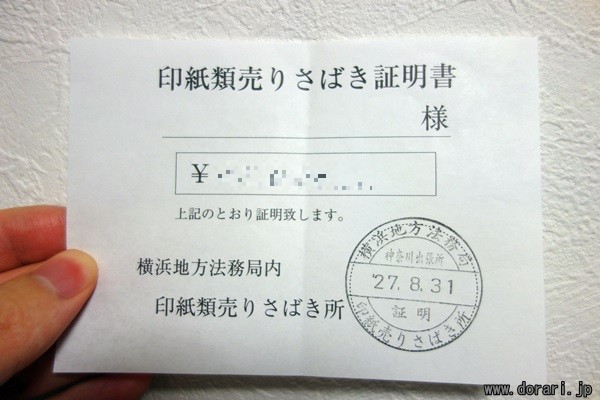 印紙類売りさばき証明書
様
¥
上記のとおり証明致します。
横浜地方法務局内
印紙類売りさばき所
横浜地方法務局
神奈川出張所
'27.8.31
証明
印紙類売りさばき所
www.dorari.jp